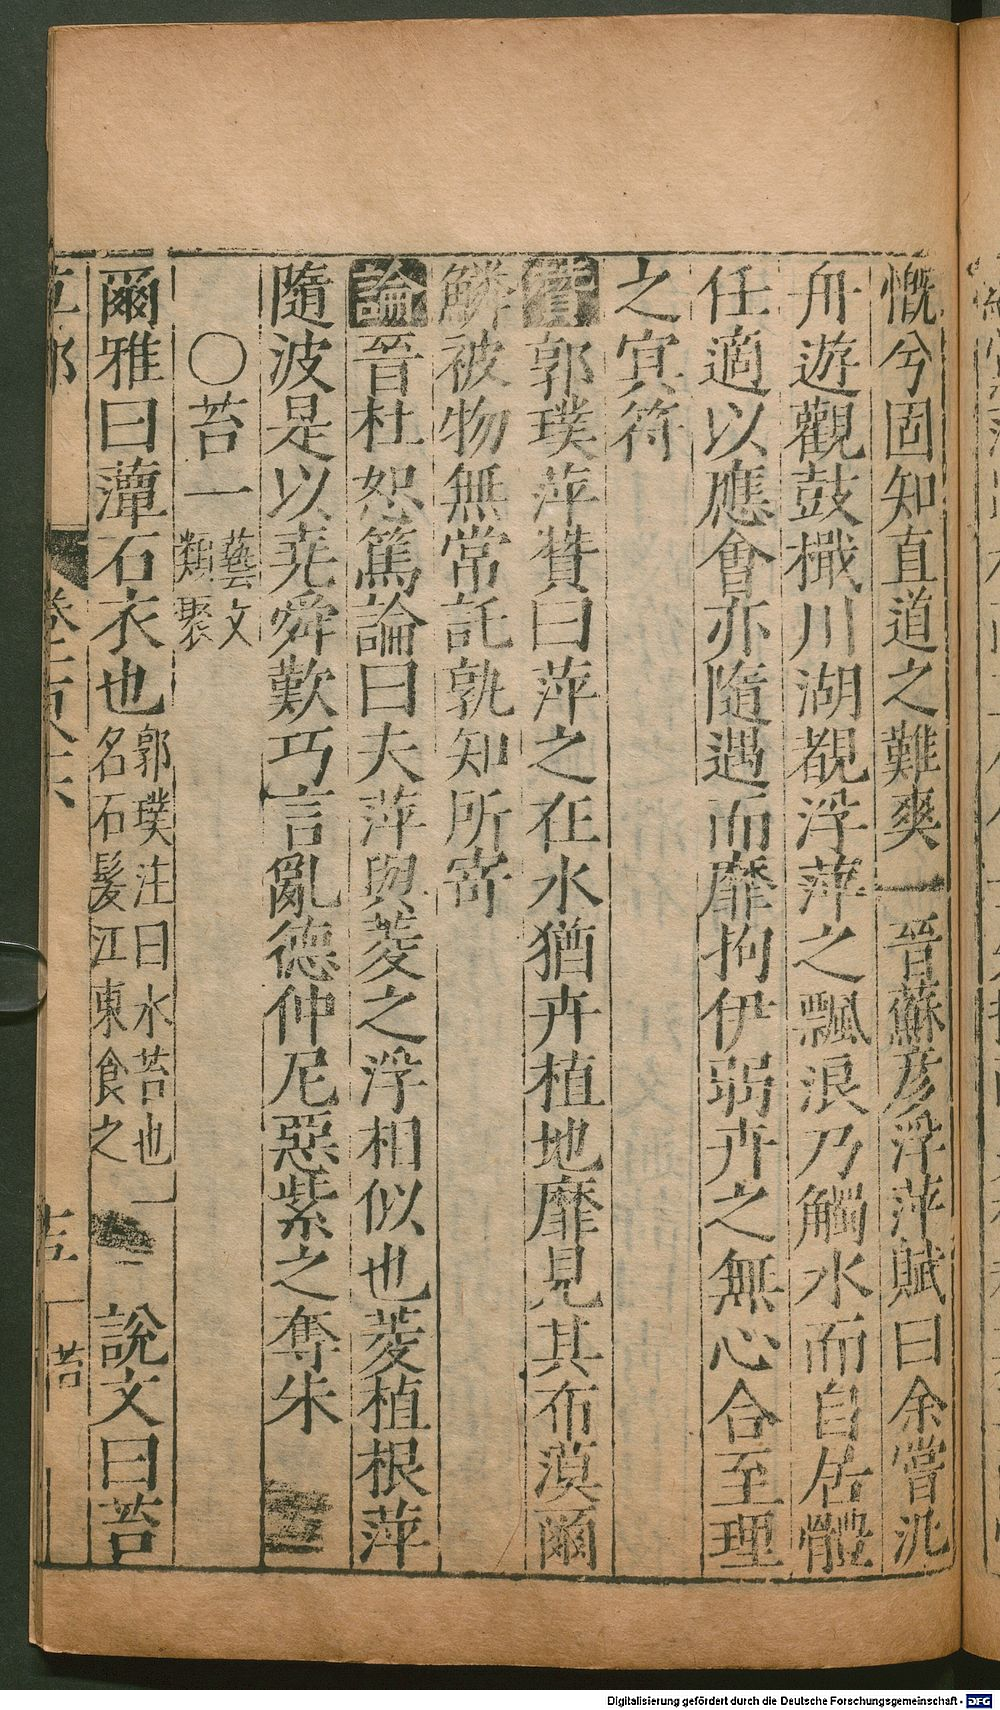 慨兮固知直道之難爽　晉蘇彦浮萍賦曰余嘗汎
舟遊觀鼓檝川湖覩浮萍之飄浪乃觸水而自居體
任適以應會亦隨遇而靡拘伊弱卉之無心合至理
之㝠符
贊郭璞萍贊曰萍之在水猶卉植地靡見其布漠爾
鱗被物無常託孰知所寄
論晉杜恕篤論曰夫萍與菱之浮相似也菱植根萍
隨波是以堯舜歎巧言亂德仲尼惡紫之奪朱
○苔一
藝文
類聚
爾雅曰藫石衣也
郭璞注曰水苔也一
名石髮江東食之
說文曰苔
草部
苔
Digitalisierung gefördert durch die Deutsche Forschungsgemeinschaft - DFG